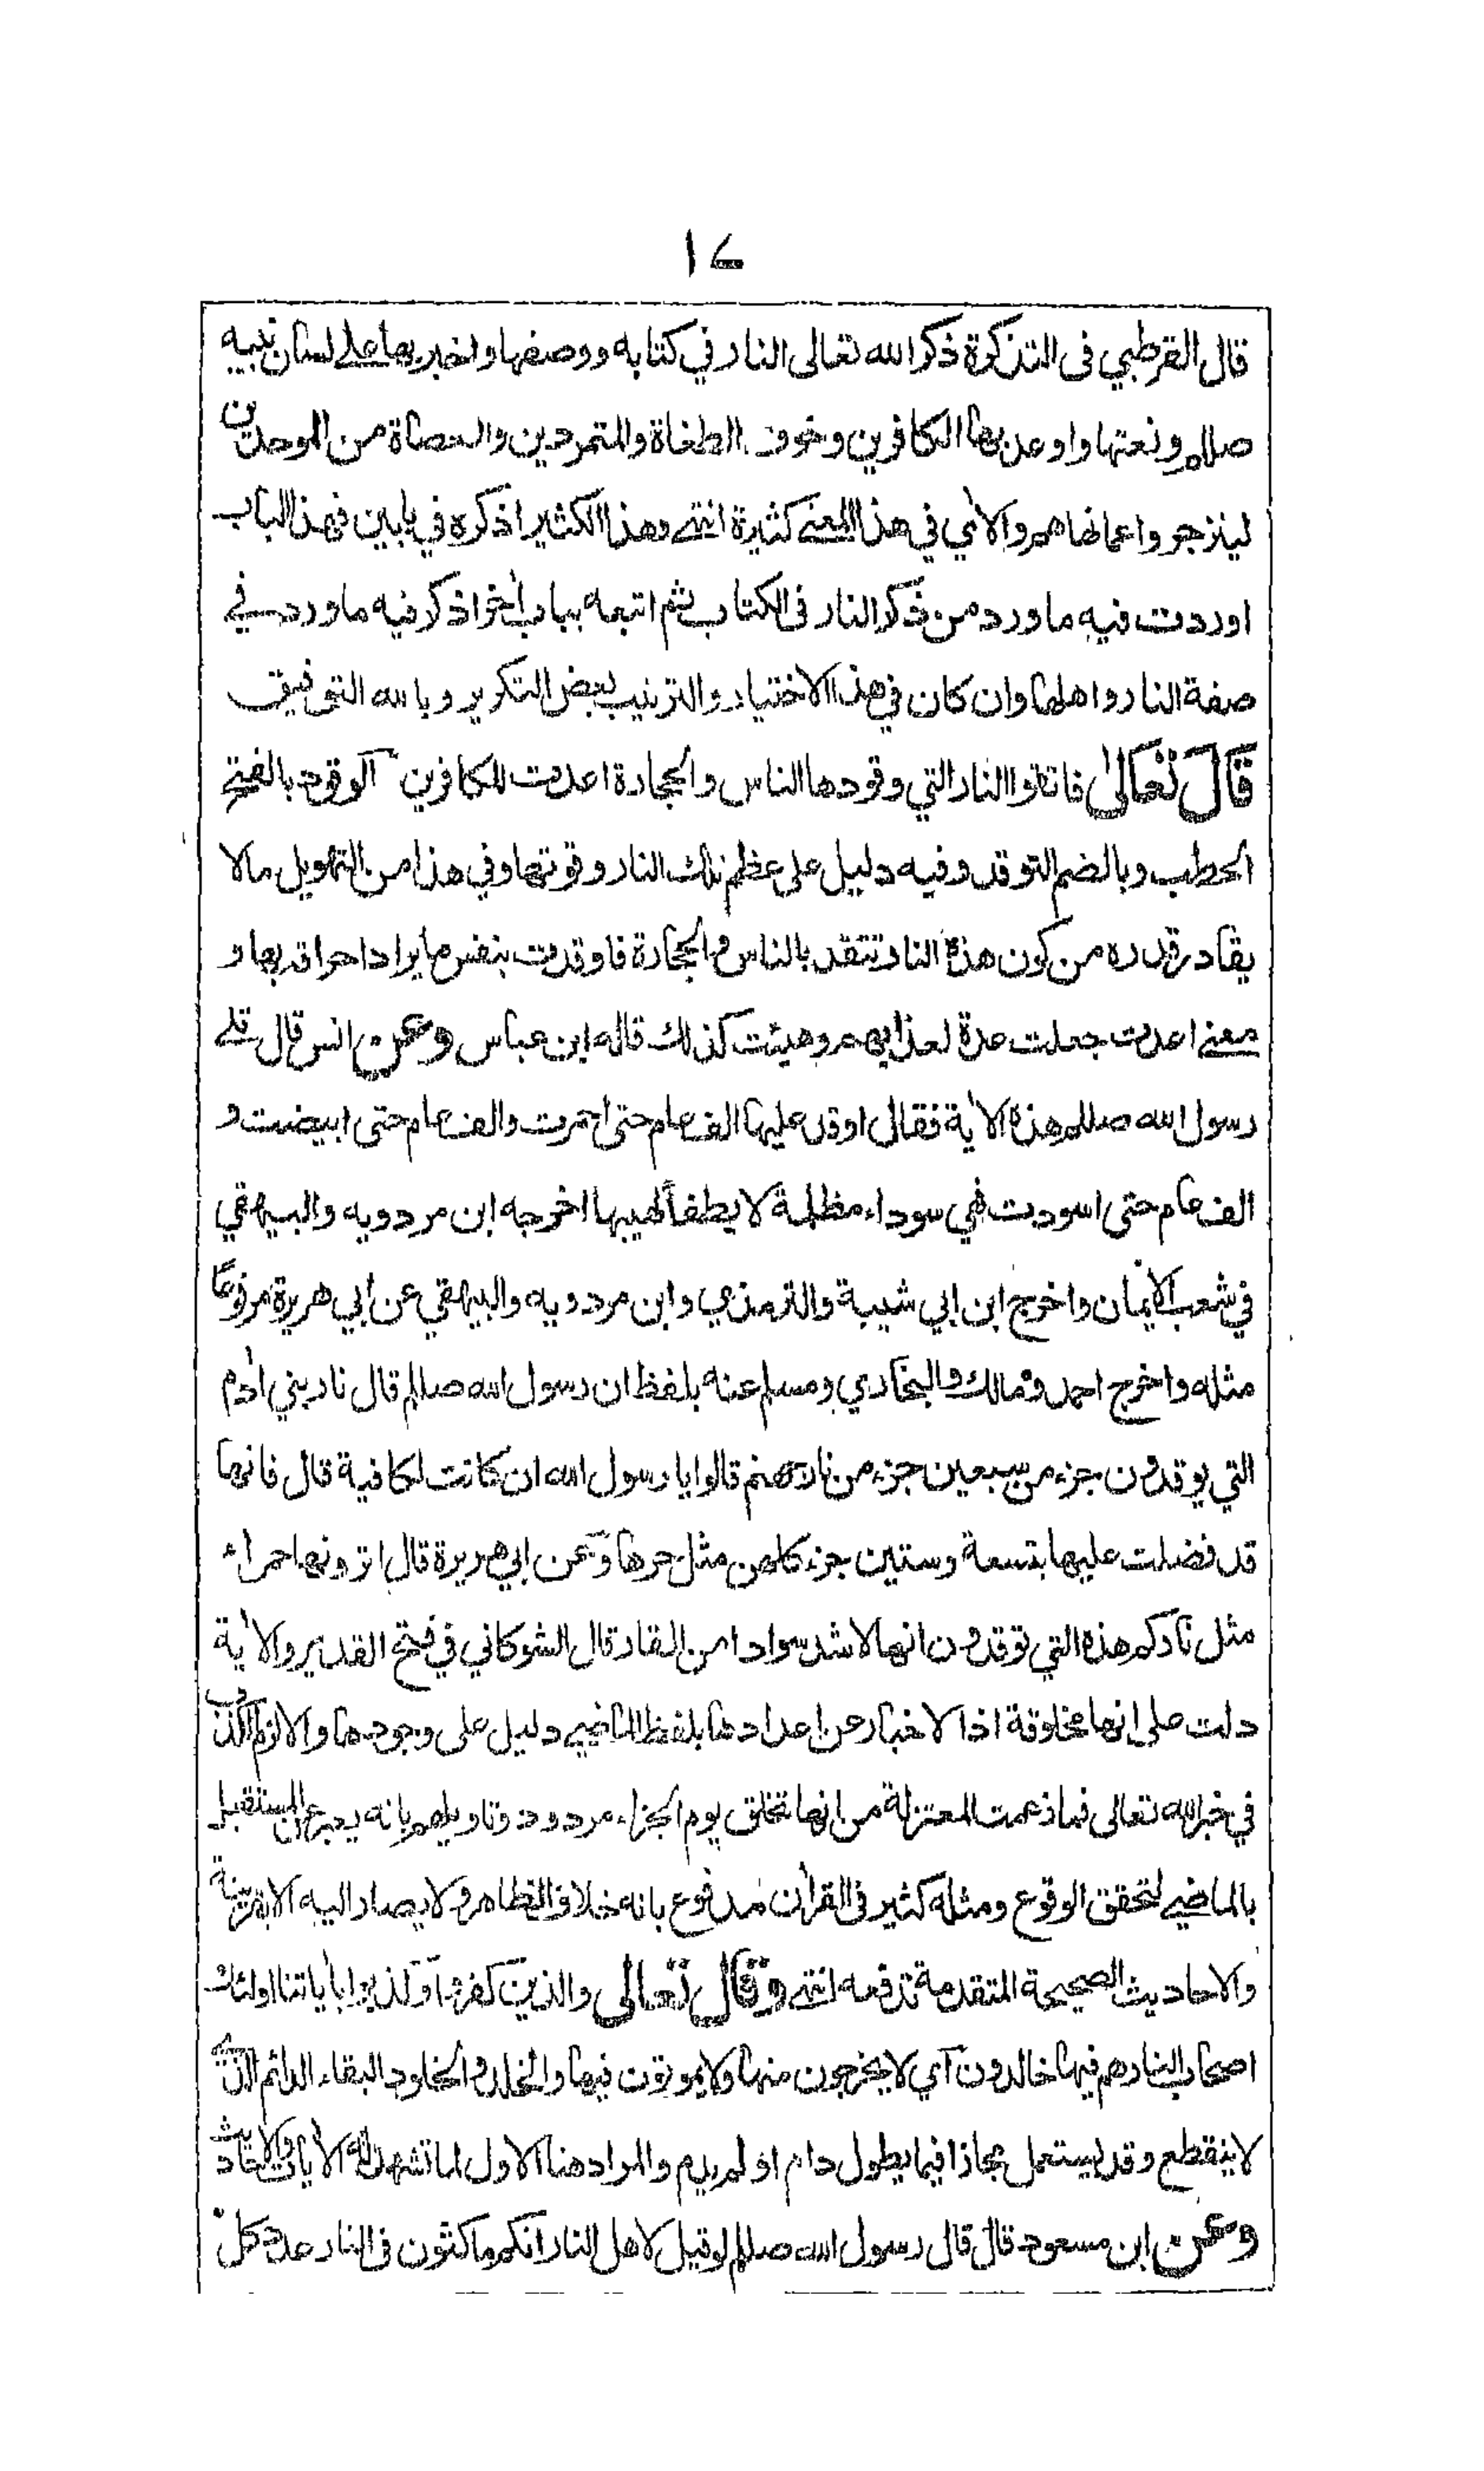 ١٤
قال القرطبي فى التذكرة ذكر الله تعالى النار في كتابه ووصفها واخبر بها على لسان نبيه
صللم ونعتها واوعد بها الكافرين وخوف الطغاة والمتمردين والعصاة من الموحدين
لينزجروا عما نهاهم والأي في هذا المعنى كثيرة انتهى وهذا الكثير اذكره في بابين فهذا الباب
اوردت فيه ما ورد من ذكر النار فى الكتاب ثم اتبعه بباب أخر اذكر فيه ما ورد في
صفة النار واهلها وان كان في هذا الاختيار والترتيب بعض التكرير وبالله التوفيق
قال تعالى فاتقوا النار التي وقودها الناس والحجارة اعدت للكافرين الوقود بالفتح
الحطب وبالضم التوقد وفيه دليل على عظم تلك النار وقوتها وفي هذا من التهويل مالا
يقادر قدره من كون هذه النار تتقد بالناس والحجارة فاوقدت بنفس ما يراد احراقه بها و
معنى اعدت جعلت عدة لعذابهم وهيئت كذلك قاله ابن عباس وعن انس قال تلى
رسول الله صللم هذه الأية فقال اوقد عليها الف عام حتى احمرت والف عام حتى ابيضت و
الف عام حتى اسودت فهي سوداء مظلمة لا يطفأ لهيبها اخرجه ابن مردويه والبيهقي
في شعب الايمان واخرج ابن ابي شيبة والترمذي وابن مردويه والبيهقي عن أبي هريرة مرفوعا
مثله واخرج احمد ومالك والبخاري ومسلم عنه بلفظ ان رسول الله صللم قال نار بني أدم
التي يوقدون جزء من سبعين جزء من نار جهنم قالوا يا رسول الله ان كانت لكافية قال فانها
قد فضلت عليها بتسعة وستين جزء كلهن مثل حرها وعن ابي هريرة قال اترونها حمراء
مثل ناركم هذه التي توقدون انها لاشد سوادا من القار قال الشوكاني في فتح القدير والأية
دلت على انها مخلوقة اذ الاخبار عن اعدادها بلفظ الماضي دليل على وجودها والا لزم الكذب
في خبر الله تعالى فما زعمت المعتزلة من انها تخلق يوم الجزاء مردود وتاويلهم بانه يعبر عن المستقبل
بالماضي لتحقق الوقوع ومثله كثير فى القرأن مدفوع بانه خلاف الظاهر ولا يصار اليه الا بقرينة
والاحاديث الصحيحة المتقدمة تدفعه انتهى وقال تعالى والذين كفروا وكذبوا بأياتنا اولئك
اصحاب النار هم فيها خالدون أي لا يخرجون منها ولا يموتون فيها والخلد والخلود البقاء الدائم الذي
لا ينقطع وقد يستعمل مجازا فيما يطول دام او لم يدم والمراد هنا الاول لما تشهد له الأيات والاحاديث
وعن ابن مسعود قال قال رسول الله صللم لو قيل لاهل النار انكم ماكثون فى النار عدد كل